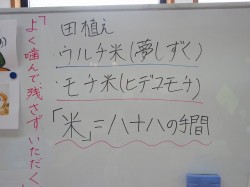 田植え
ウルチ米(夢しずく)
・モチ米(ヒデコモチ)
「米」=八十八の手間
「よく噛んで残さずいただく」